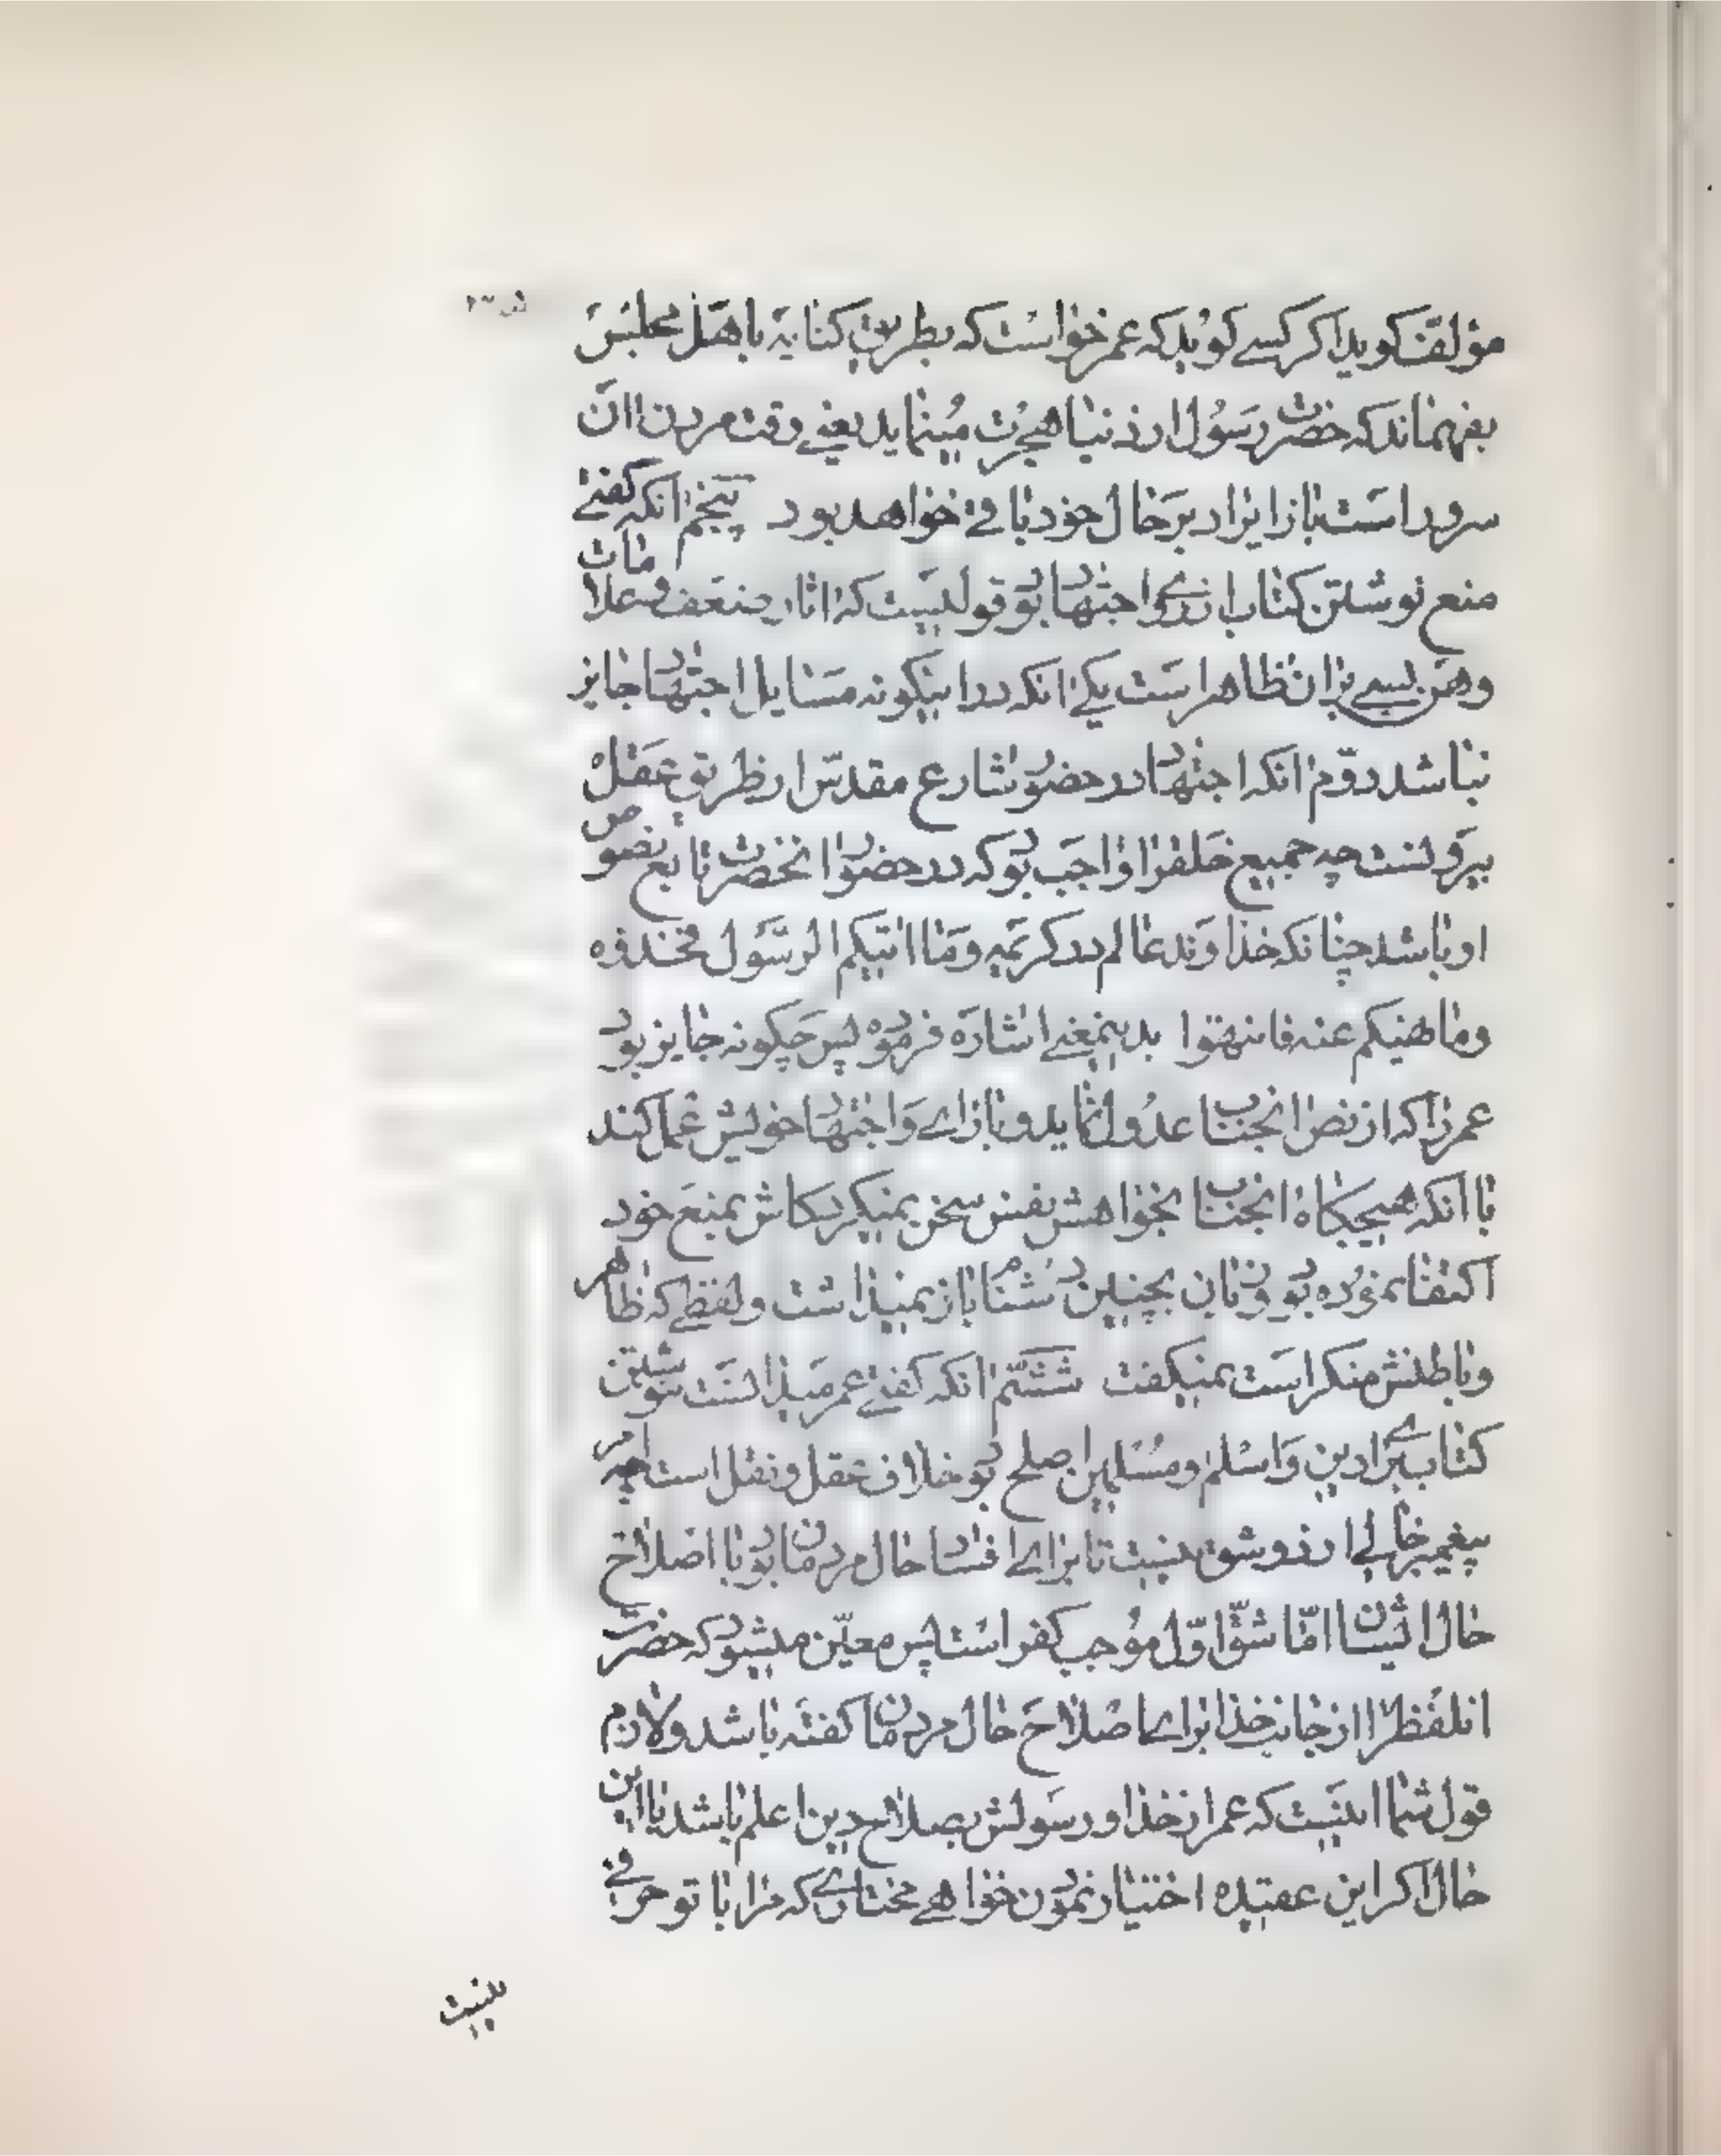 مؤلف کوید اکر کسے کوید که عمر خواست که بطریق کنایه باهل مجلس
بفهماند که حضرت رسول ارذ نیا هجرت مینماید یعنے وقت مردن ان
سرور است باز ایراد بر حال خود باقے خواهد بود پنجم انکه کفتے
منع نوشتن کتاب از روے اجتهاد بود قولیست که اثار ضعف و علامات
وهن بسے بران ظاهر است یکے انکه در اینکونه مسایل اجتهاد جایز
نباشد دوّم انکه اجتهاد در حضور شارع مقدّس از طریق عقل
بیرونست چه جمیع خلق را واجب بود که در حضور انحضرت تابع نصوص
او باشد چنانکه خداوند عالم در کریمه وما اتیکم الرسول فخذوه
وما نهیکم عنه فانتهوا بدینمعنے اشاره فرموده پس چکونه جایز بود
عمر را که از نص انجناب عدول نماید و بازاے و اجتهاد خویش عمل کند
با انکه هیچکاه انجناب بخواهش نفس سخن نمیکرد کاش بمنع خود
اکتفا نموده بود و زبان بچنین دشنام باز نمیداشت و لفظے که ظاهر
و باطنش منکر است نمیکفت ششم انکه کفتے عمر میدانست نوشتن
کتاب براے دین و اسلم و مسلمین اصلح بود خلاف عقل و نقل است چه امر
پیغمبر خالے ارذ و شق نیست تا براے افساد حال مردمان بود یا اصلاح
حال ایشان امّا شقّ اوّل موجب کفر است پس معیّن میشود که حضرت
انلفظ را از جانب خدا براے اصلاح حال مردمان کفته باشد و لازم
قول شما اینست که عمر از خدا و رسولش بصلاح دین اعلم باشد با این
حال اکر این عقیده اختیار نمودن خواهے مختارے که مرا با تو حرفے
نیست